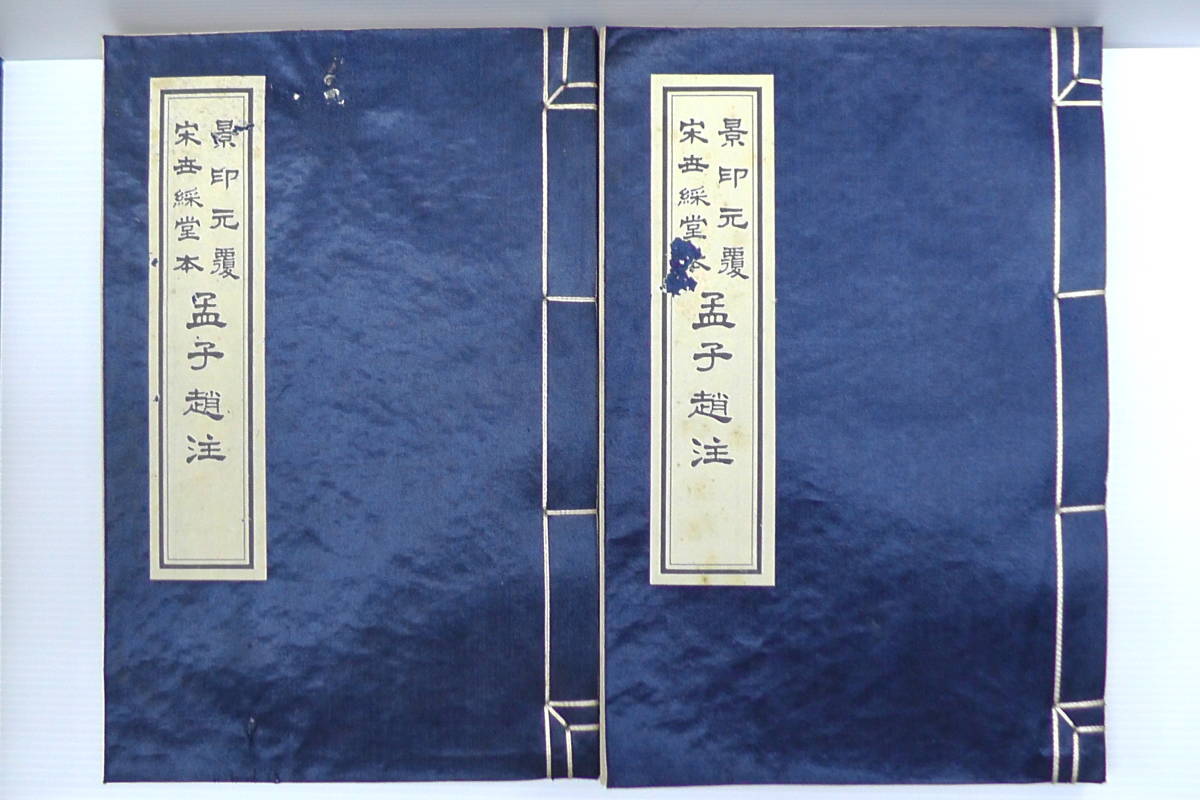 景印元覆
宋世綵堂本
孟子趙注
景印元覆
宋世綵堂本
孟子趙注